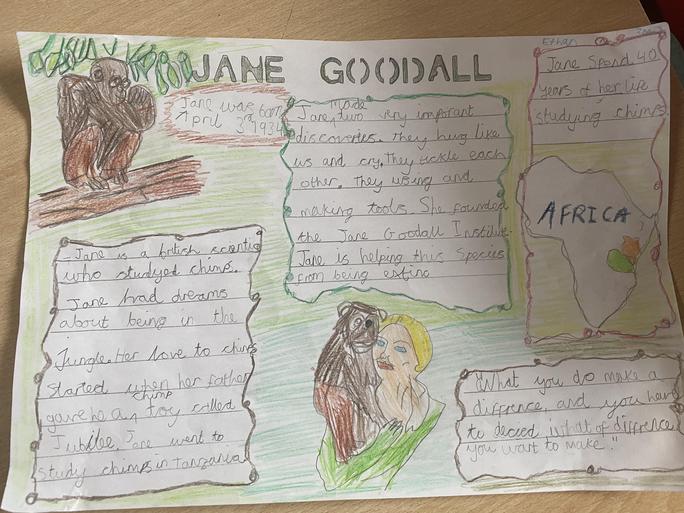 Ethan
JANE GOODALL
Jane was born
April 3rd 1934
Jane made two very imporant
discoveries. They hug like
us and cry. They tickle each
other. They using and
making tools. She founded
the Jane Goodall Institute.
Jane is helping this species
from being extinc
Jane Spend 40
years of her life
studying chimps.
AFRICA
Jane is a british scientis
who studyed chimps.
Jane had dreams
about being in the
Jungle. Her love to chimps
started when her father
gave he a chimp toy called
Jubilee. Jane went to
study chimps in Tanzania
"What you do make a
diffrence, and you have
to decied what of diffrence
you want to make."